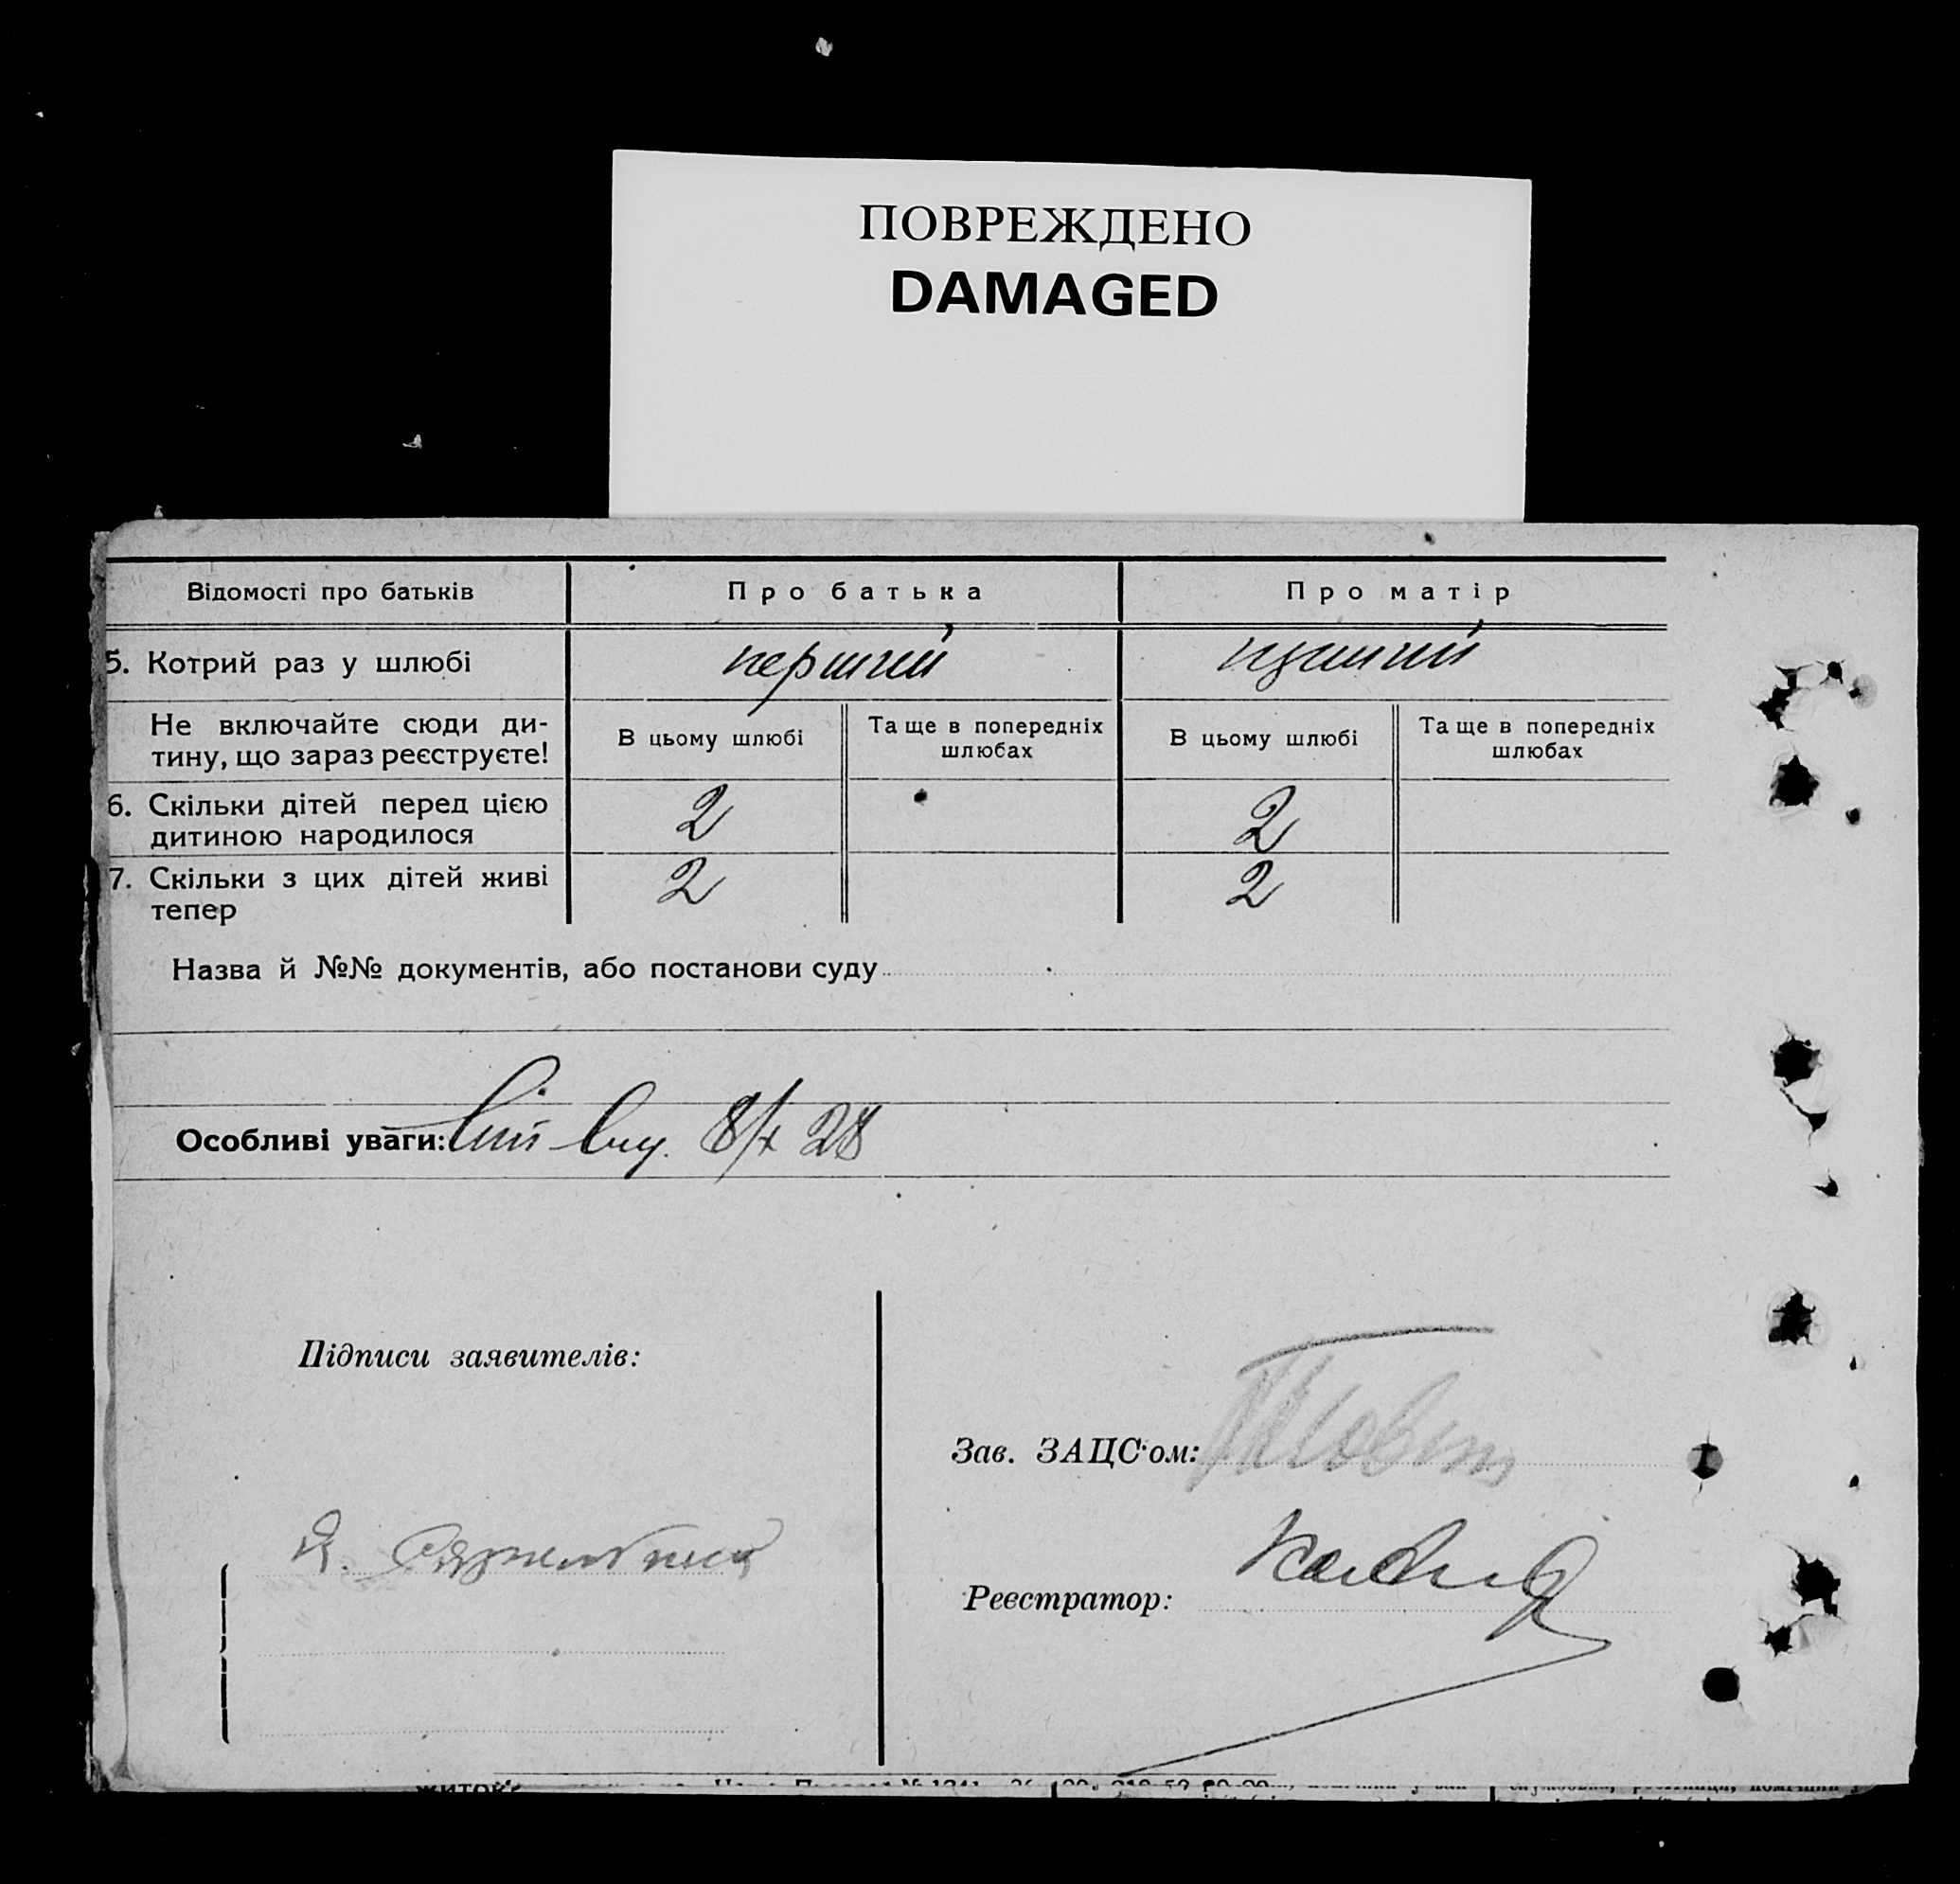 ПОВРЕЖДЕНО
DAMAGED
Відомості про батьків
Про батька
Про матір
5. Котрий раз у шлюбі
перший
перший
Не включайте сюди ди-
тину, що зараз реєструєте!
В цьому шлюбі
Та ще в попередніх
шлюбах
В цьому шлюбі
Та ще в попередніх
шлюбах
6. Скільки дітей перед цією
дитиною народилося
2
2
7. Скільки з цих дітей живі
тепер
2
2
Назва й №№ документів, або постанови суду
Особливі уваги: 8/X 28
Підписи заявителів:
Зав. ЗАЦС'ом:
Реєстратор: